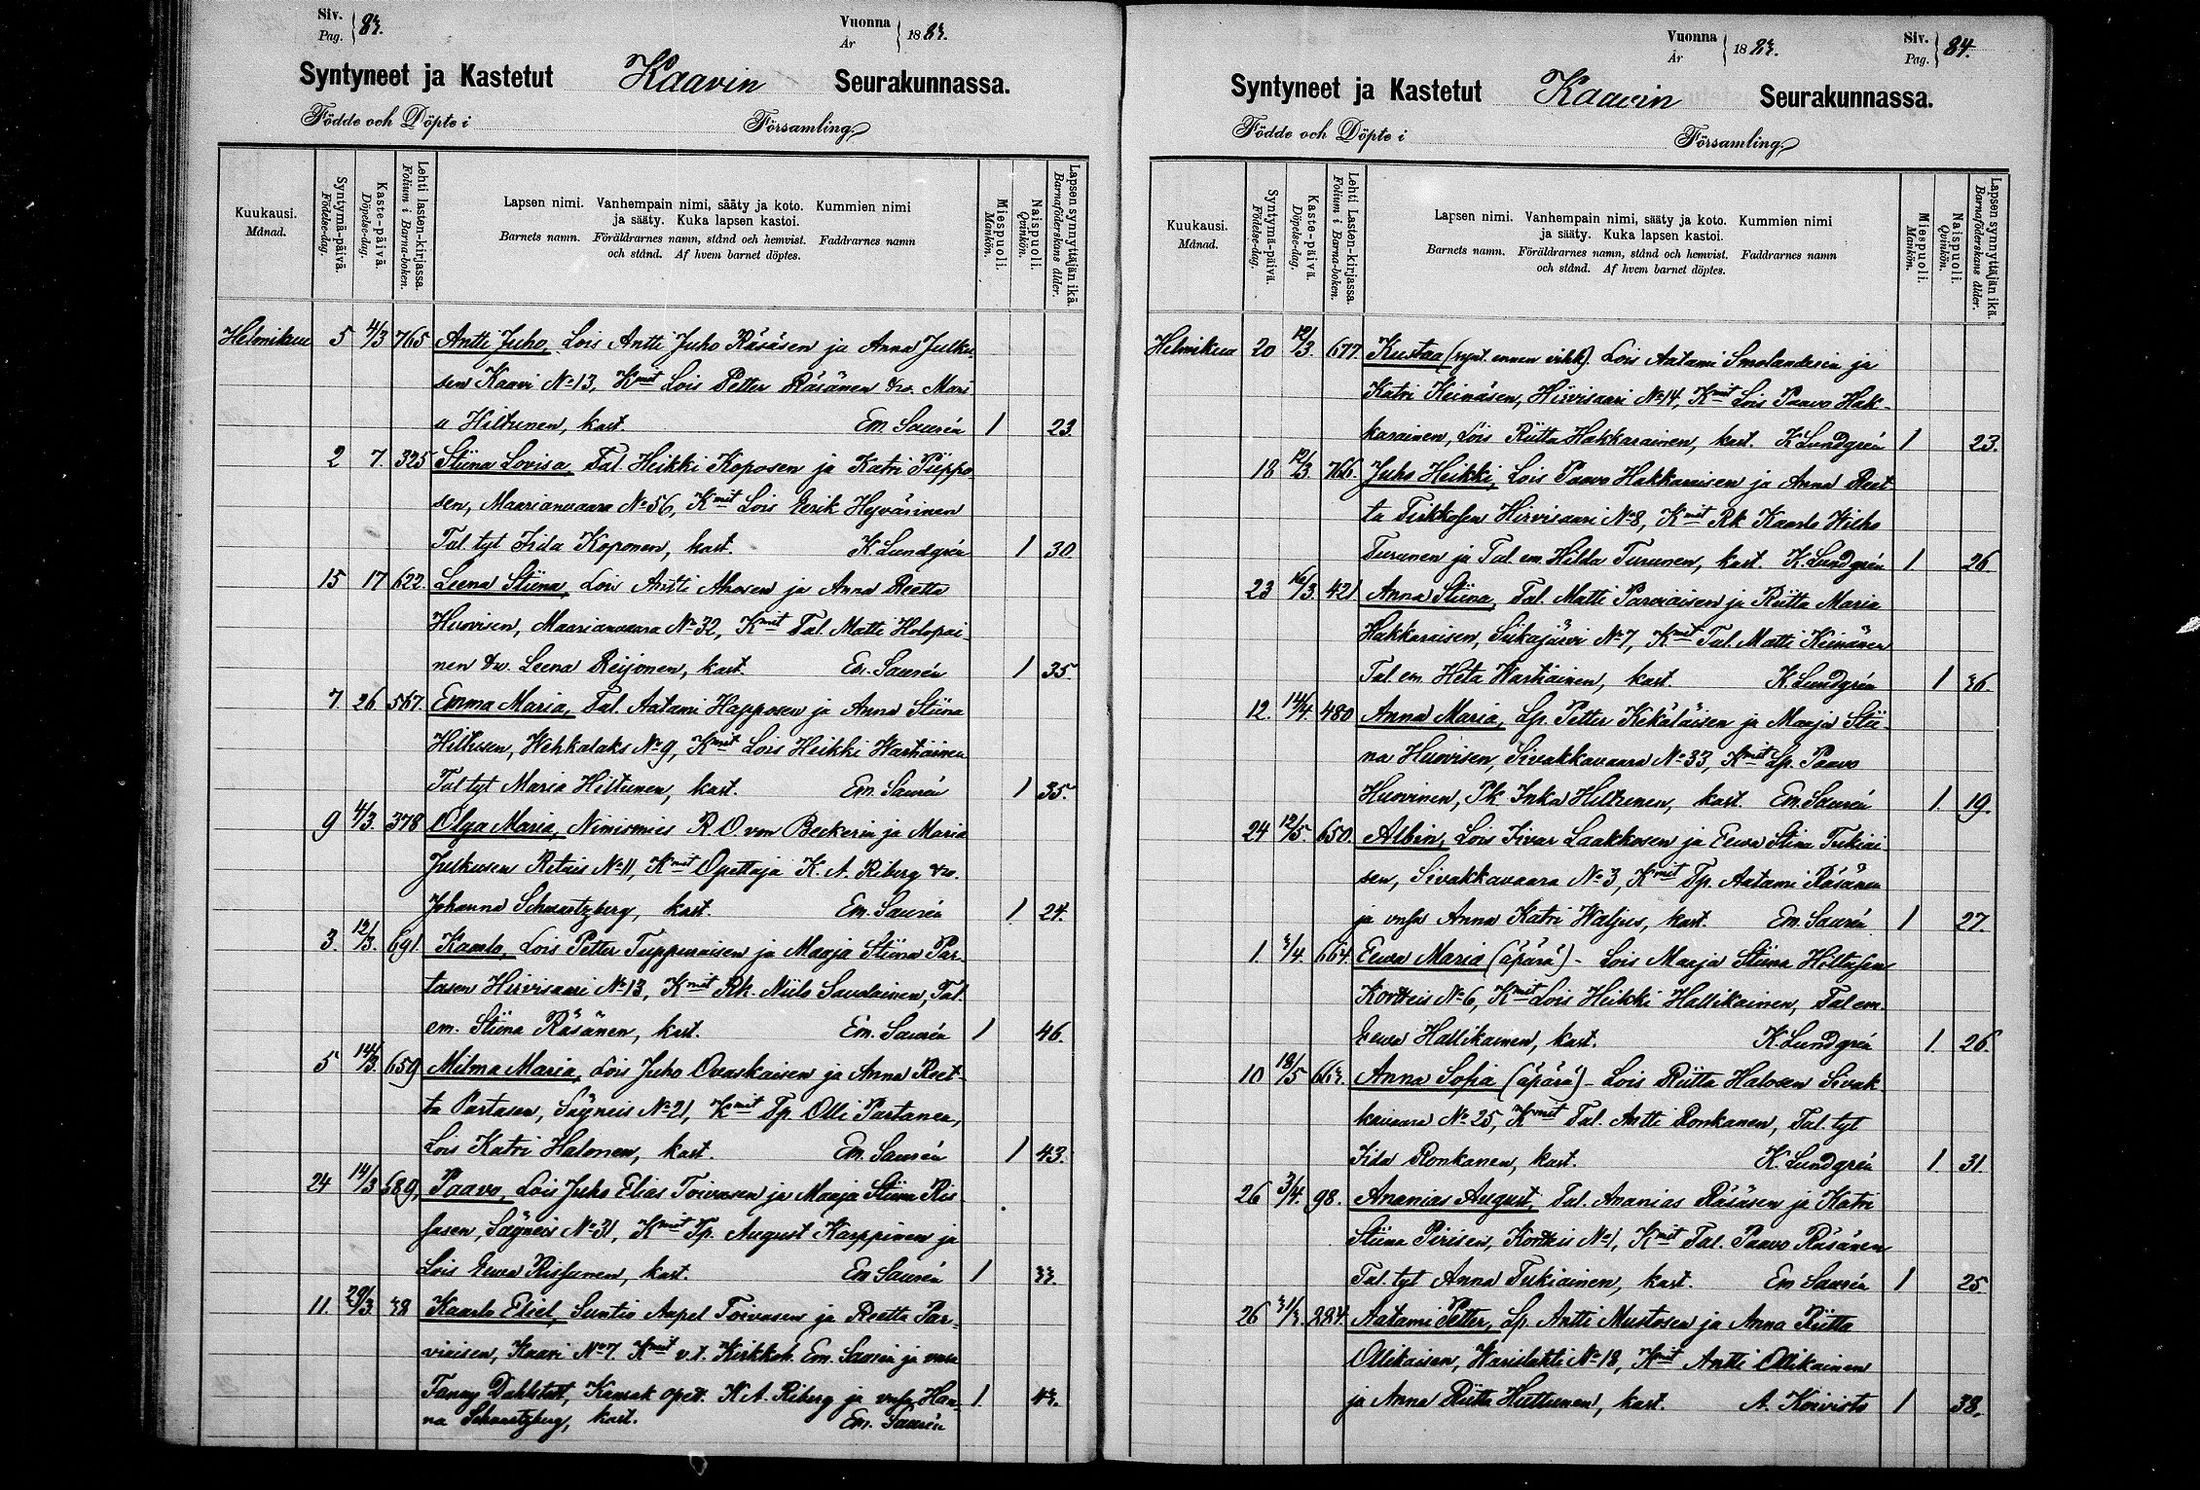 Siv. Pag. 83.
Vuonna År 1883.
Syntyneet ja Kastetut Kaavin Seurakunnassa.
Födde och Döpte i Församling.
Kuukausi. Månad.
Syntymä-päivä. Födelse-dag.
Kaste-päivä. Döpelse-dag.
Lehti lasten-kirjassa. Folium i Barna-boken.
Lapsen nimi. Vanhempain nimi, sääty ja koto. Kummien nimi
ja sääty. Kuka lapsen kastoi.
Barnets namn. Föräldrarnes namn, stånd och hemvist. Faddrarnes namn
och stånd. Af hvem barnet döptes.
Miespuoli. Mankön.
Naispuoli. Qvinkön.
Lapsen synnyttäjän ikä. Barnaföderskans ålder.
Helmikuu 5 4/3 765 Antti Juho, Lois Antti Juho Räsäsen ja Anna Julku
sen Kaavi No 13, Kmit Lois Petter Räsänen &vo. Mari
a Hiltunen, kast. Em. Saurén 1 23.
2 7. 325 Stiina Lovisa, Tal. Heikki Koposen ja Katri Piippo
sen, Maarianvaara No 56, Kmit Lois Eerik Hyvärinen
Tal. tyt Iida Koponen, kast. K. Lundgrén 1 30
15 17 622. Leena Stiina, Lois Antti Ahosen ja Anna Reetta
Huovisen, Maarianvaara No 32, Kmit Tal. Matti Holopai-
nen &v. Leena Reijonen, kast. Em. Saurén 1 35.
7 26 567. Emma Maria, Tal. Aatami Happosen ja Anna Stiina
Hiltusen, Wehkalaks No 9, Kmit Lois Heikki Wartiainen
Tal tyt Maria Hiltunen, kast. Em. Saurén 1 35.
9 4/3. 378 Olga Maria, Nimismies R. O. von Beckerin ja Maria
Julkusen Retais No 11, Kmit Opettaja K. A. Riberg &vo.
Johanna Schwartzberg, kast. Em. Saurén 1 24.
3. 12/3. 691. Kaarlo, Lois Petter Tuppuraisen ja Maaja Stiina Par-
tasen Hirvisaari No 13, Kmit Rk. Niilo Saudainen, Tal.
em. Stiina Räsänen, kast. Em. Saurén 1 46.
5 14/3. 659 Milma Maria, Lois Juho Ovaskaisen ja Anna Reet-
ta Partasen, Säyneis No 21, Kmit Tp. Olli Partanen,
Lois Katri Halonen, kast. Em. Saurén 1 43.
24 14/3 689, Paavo, Lois Juho Elias Toivasen ja Maaja Stiina Ris
sasen, Säyneis No 31, Kmit Tp. August Karppinen ja
Lois Eeva Rissanen, kast. Em Saurén 1 33.
11. 29/3. 38 Kaarlo Eliel, Suntio Aapel Toivasen ja Reetta Par-
viaisen, Kaavi No 7. Kmit v.t. Kirkkoh. Em. Saurén ja
Fanny Dahlstet, Kansak opet. K. A. Riberg ja vnsa Han- 1. 43.
na Schwartzberg, kast. Em. Saurén
Vuonna År 1883.
Siv. Pag. 84.
Syntyneet ja Kastetut Kaavin Seurakunnassa.
Födde och Döpte i Församling.
Kuukausi. Månad.
Syntymä-päivä. Födelse-dag.
Kaste-päivä. Döpelse-dag.
Lehti Lasten-kirjassa. Folium i Barna-boken.
Lapsen nimi. Vanhempain nimi, sääty ja koto. Kummien nimi
ja sääty. Kuka lapsen kastoi.
Barnets namn. Föräldrarnes namn, stånd och hemvist. Faddrarnes namn
och stånd. Af hvem barnet döptes.
Miespuoli. Mankön.
Naispuoli. Qvinkön.
Lapsen synnyttäjän ikä. Barnaföderskans ålder.
Helmikuu 20 12/3. 677. Kustaa (synt. ennen vihk). Lois Aatami Smolanderin ja
Katri Keinäsen, Hirvisaari No 14, Kmit Lois Paavo Hak-
karainen, Lois Riitta Hakkarainen, kast. K Lundgrén 1 23.
18 12/3. 766. Juho Heikki, Lois Paavo Hakkaraisen ja Anna Reet-
ta Tirkkosen Hirvisaari No 8, Kmit Rk. Kaarlo Wilho
Turunen ja Tal. em. Hilda Turunen, kast. K. Lundgrén 1 26.
23 16/3. 421 Anna Stiina, Tal. Matti Parviaisen ja Riitta Maria
Hakkaraisen, Siikajärvi No 7, Kmit Tal. Matti Keinänen
Tal em. Heta Wartiainen, kast. K. Lundgrén 1 36.
12. 14/4. 480 Anna Maria, Lp. Petter Kekäläisen ja Maaja Stii-
na Huovisen, Sivakkavaara No 33, Kmit Lp. Paavo
Huovinen, Pk Inka Hiltunen, kast. Em. Saurén 1. 19.
24 12/5. 650. Albin, Lois Iivar Laakkosen ja Eeva Stina Tukiai
sen, Sivakkavaara No 3, Kmit Tp. Aatami Räsänen
ja vnsa Anna Katri Waljus, kast. Em. Saurén 1 27.
1. 3/4. 664. Eeva Maria (äpärä) - Lois Maaja Stiina Hiltusen
Kortteis No 6, Kmit Lois Heikki Hallikainen, Tal em.
Eeva Hallikainen, kast. K. Lundgrén 1. 26.
10 18/5 663. Anna Sofia (äpärä) - Lois Riitta Halosen Sivak
kavaara No 25, Kmit Tal. Antti Ronkanen, Tal. tyt
Iida Ronkanen, kast. K. Lundgrén 1 31.
26 3/4. 98. Ananias August, Tal. Ananias Räsäsen ja Katri
Stiina Pirisen, Kortteis No 1, Kmit Tal. Paavo Räsänen
Tal. tyt Anna Tukiainen, kast. Em Saurén 1 25
26 31/3. 284. Aatami Petter, Lp. Antti Mustosen ja Anna Riitta
Ollikaisen, Warislahti No 18, Kmit Antti Ollikainen
ja Anna Riitta Huttunen, kast. A. Koivisto 1 38.